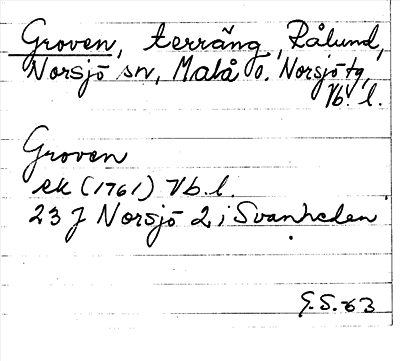 Groven, terräng, Rålund,
Norsjö sn, Malå o. Norsjö tg,
Vb. l.
Groven
ek (1761) Vb. l.
23 J Norsjö 2 i Svanheden
G.S.-63